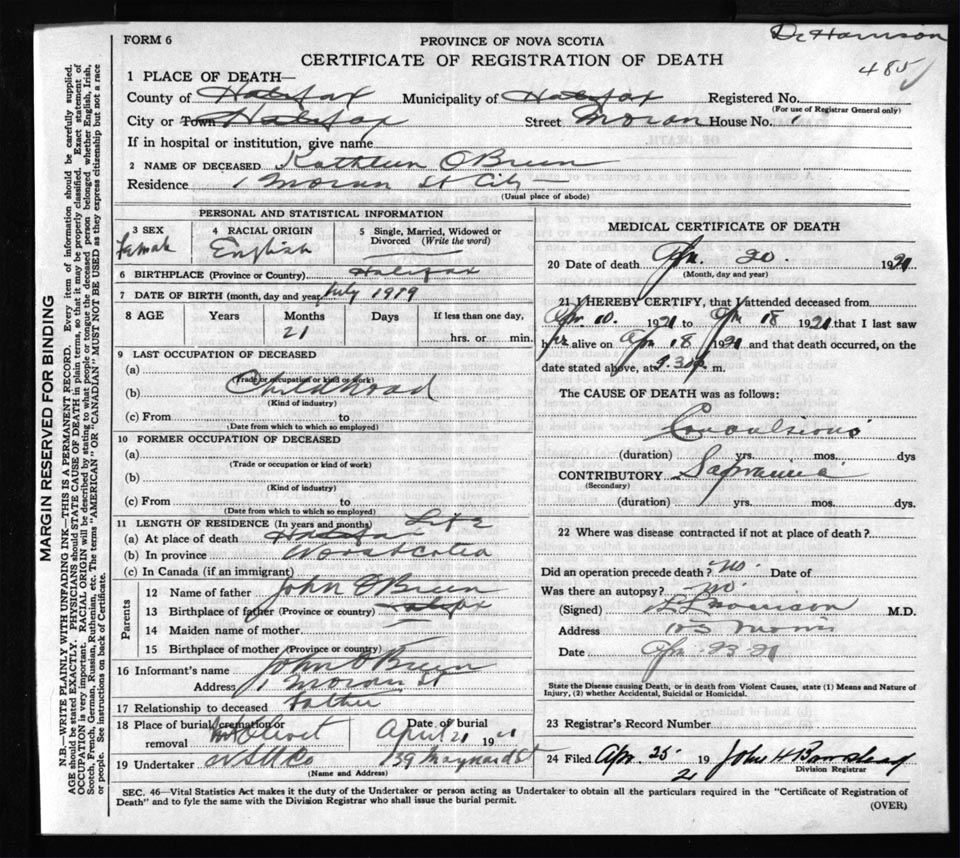 Dr Harrison
485
FORM 6
PROVINCE OF NOVA SCOTIA
CERTIFICATE OF REGISTRATION OF DEATH
MARGIN RESERVED FOR BINDING
N.B.—WRITE PLAINLY WITH UNFADING INK—THIS IS A PERMANENT RECORD. Every item of information should be carefully supplied.
AGE should be stated EXACTLY. PHYSICIANS should STATE CAUSE OF DEATH in plain terms, so that it may be properly classified. Exact statement of
OCCUPATION is very important. RACIAL ORIGIN will be described by stating to what people or tongue the deceased person belonged whether English, Irish,
Scotch, French, German, Russian, Ruthenian, etc. The terms "AMERICAN" OR "CANADIAN" MUST NOT BE USED as they express citizenship but not a race
or people. See instructions on back of Certificate.
1 PLACE OF DEATH—
County of Halifax Municipality of Halifax Registered No.
(For use of Registrar General only)
City or Town Halifax Street Moran House No. 1
If in hospital or institution, give name
2 NAME OF DECEASED Kathleen O'Brien
Residence 1 Moran St City
(Usual place of abode)
PERSONAL AND STATISTICAL INFORMATION
3 SEX 4 RACIAL ORIGIN 5 Single, Married, Widowed or
Divorced (Write the word)
Female English
6 BIRTHPLACE (Province or Country) Halifax
7 DATE OF BIRTH (month, day and year) July 1919
8 AGE Years Months Days If less than one day,
21 hrs. or min.
9 LAST OCCUPATION OF DECEASED
(a)
(Trade or occupation or kind of work)
(b) Childhood
(Kind of industry)
(c) From to
(Date from which to which so employed)
10 FORMER OCCUPATION OF DECEASED
(a)
(Trade or occupation or kind of work)
(b)
(Kind of industry)
(c) From to
(Date from which to which so employed)
11 LENGTH OF RESIDENCE (In years and months) Life
(a) At place of death Halifax
(b) In province Nova Scotia
(c) In Canada (if an immigrant)
Parents
12 Name of father John O'Brien
13 Birthplace of father (Province or country) Halifax
14 Maiden name of mother
15 Birthplace of mother (Province or country)
16 Informant's name John O'Brien
Address 1 Moran St
17 Relationship to deceased Father
18 Place of burial, cremation or Date of burial
removal Mt Olivet April 21 19
19 Undertaker 139 Maynard St
(Name and Address)
MEDICAL CERTIFICATE OF DEATH
20 Date of death Apr. 20. 1921
(Month, day and year)
21 I HEREBY CERTIFY, that I attended deceased from
Apr. 10. 1921 to Apr 18 1921 that I last saw
her alive on Apr 18 1921 and that death occurred, on the
date stated above, at 9.30 p. m.
The CAUSE OF DEATH was as follows:
Convulsions
(duration) yrs. mos. dys
CONTRIBUTORY Sapraemia
(Secondary)
(duration) yrs. mos. dys.
22 Where was disease contracted if not at place of death?
Did an operation precede death? No. Date of
Was there an autopsy? No.
(Signed) Harrison M.D.
Address Morris
Date Apr. 23. 21
State the Disease causing Death, or in death from Violent Causes, state (1) Means and Nature of
Injury, (2) whether Accidental, Suicidal or Homicidal.
23 Registrar's Record Number
24 Filed Apr. 25 19 21 John H
Division Registrar
SEC. 46—Vital Statistics Act makes it the duty of the Undertaker or person acting as Undertaker to obtain all the particulars required in the "Certificate of Registration of
Death" and to fyle the same with the Division Registrar who shall issue the burial permit.
(OVER)